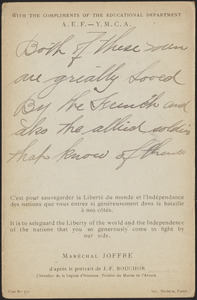 WITH THE COMPLIMENTS OF THE EDUCATIONAL DEPARTMENT
A. E. F. — Y. M. C. A.
Both of these men
are greatly loved
By the French and
also the allied soldiers
that know of them
C'est pour sauvegarder la Liberté du monde et l'Indépendance
des nations que vous entrez si généreusement dans la bataille
à nos côtés.
It is to safeguard the Liberty of the world and the Independence
of the nations that you so generously come to fight by
our side.
MARÉCHAL JOFFRE
d'après le portrait de J.F. BOUCHOR